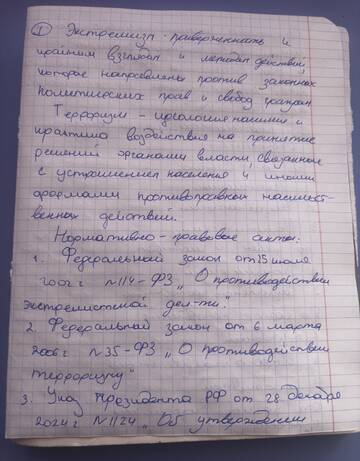 1 Экстремизм - приверженность к
крайним взглядам и методам действий,
которые направлены против законных
политических прав и свобод граждан
Терроризм - идеология насилия и
практика воздействия на принятие
решений органами власти, связанные
с устрашением населения и иными
формами противоправных насильст-
венных действий.
Нормативно-правовые акты:
1. Федеральный закон от 25 июля
2002 г N114-ФЗ „О противодействии
экстремистской деят-ти."
2. Федеральный закон от 6 марта
2006 г N35-ФЗ „О противодействии
терроризму"
3. Указ Президента РФ от 28 декабря
2024 г N1124 „Об утверждении